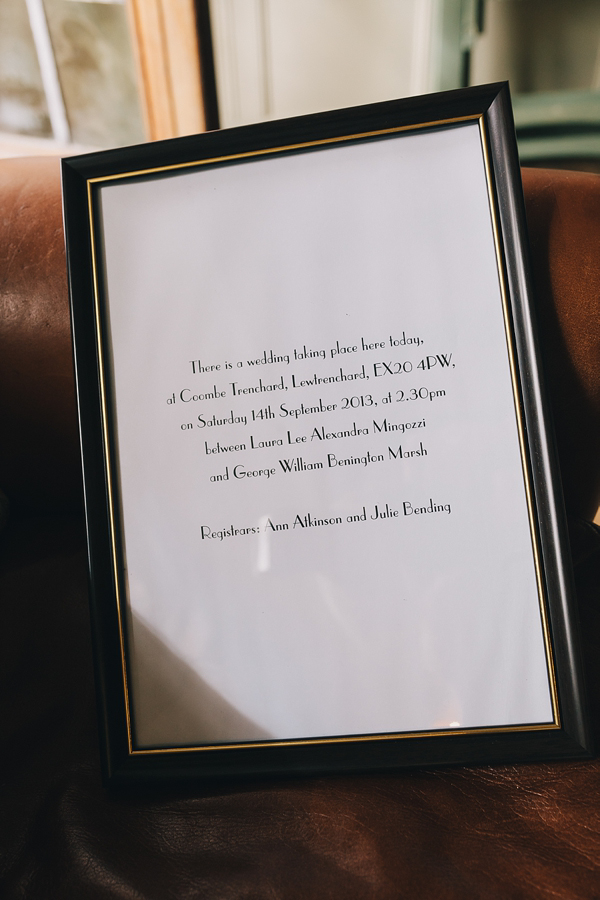 There is a wedding taking place here today,
at Coombe Trenchard, Lewtrenchard, EX20 4PW,
on Saturday 14th September 2013, at 2.30pm
between Laura Lee Alexandra Mingozzi
and George William Benington Marsh
Registrars: Ann Atkinson and Julie Bending